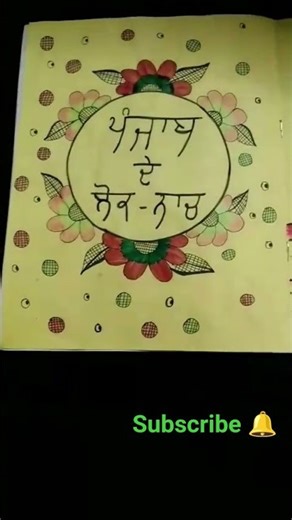 ਪੰਜਾਬ
ਦੇ
ਲੋਕ-ਨਾਚ
Subscribe 🔔